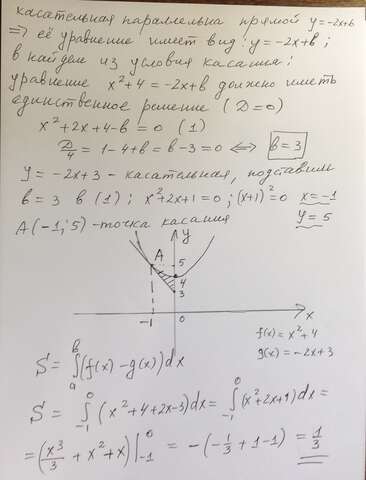 касательная параллельна прямой y=-2x+b
⟹ её уравнение имеет вид: y=-2x+b;
b найдем из условия касания:
уравнение x²+4=-2x+b должно иметь
единственное решение (D=0)
x²+2x+4-b=0 (1)
D/4=1-4+b=b-3=0 ⟺ b=3
y=-2x+3-касательная, подставим
b=3 в (1); x²+2x+1=0; (x+1)²=0 x=-1
y=5
A(-1;5)-точка касания
y
A
5
4
3
-1
0
x
f(x)=x²+4
g(x)=-2x+3
S=∫ₐᵇ(f(x)-g(x))dx
S=∫₋₁⁰(x²+4+2x-3)dx=∫₋₁⁰(x²+2x+1)dx=
=(x³/3+x²+x)|₋₁⁰=-(-1/3+1-1)=1/3